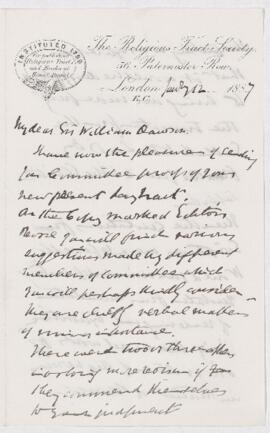 INSTITUTED 1799
The Religious Tract Society,
56, Paternoster Row,
London, July 12 1887
E.C.
My dear Sir William Dawson
I have now the pleasure of sending
you Committee proof of your
new present day tract.
On the Copy marked Editors
Revise you will find various
suggestions made by different
members of Committee which
you will perhaps kindly consider.
They are chiefly verbal matters
of minor importance.
There are two or three others
involving more revision if you
They commend themselves
to your judgment